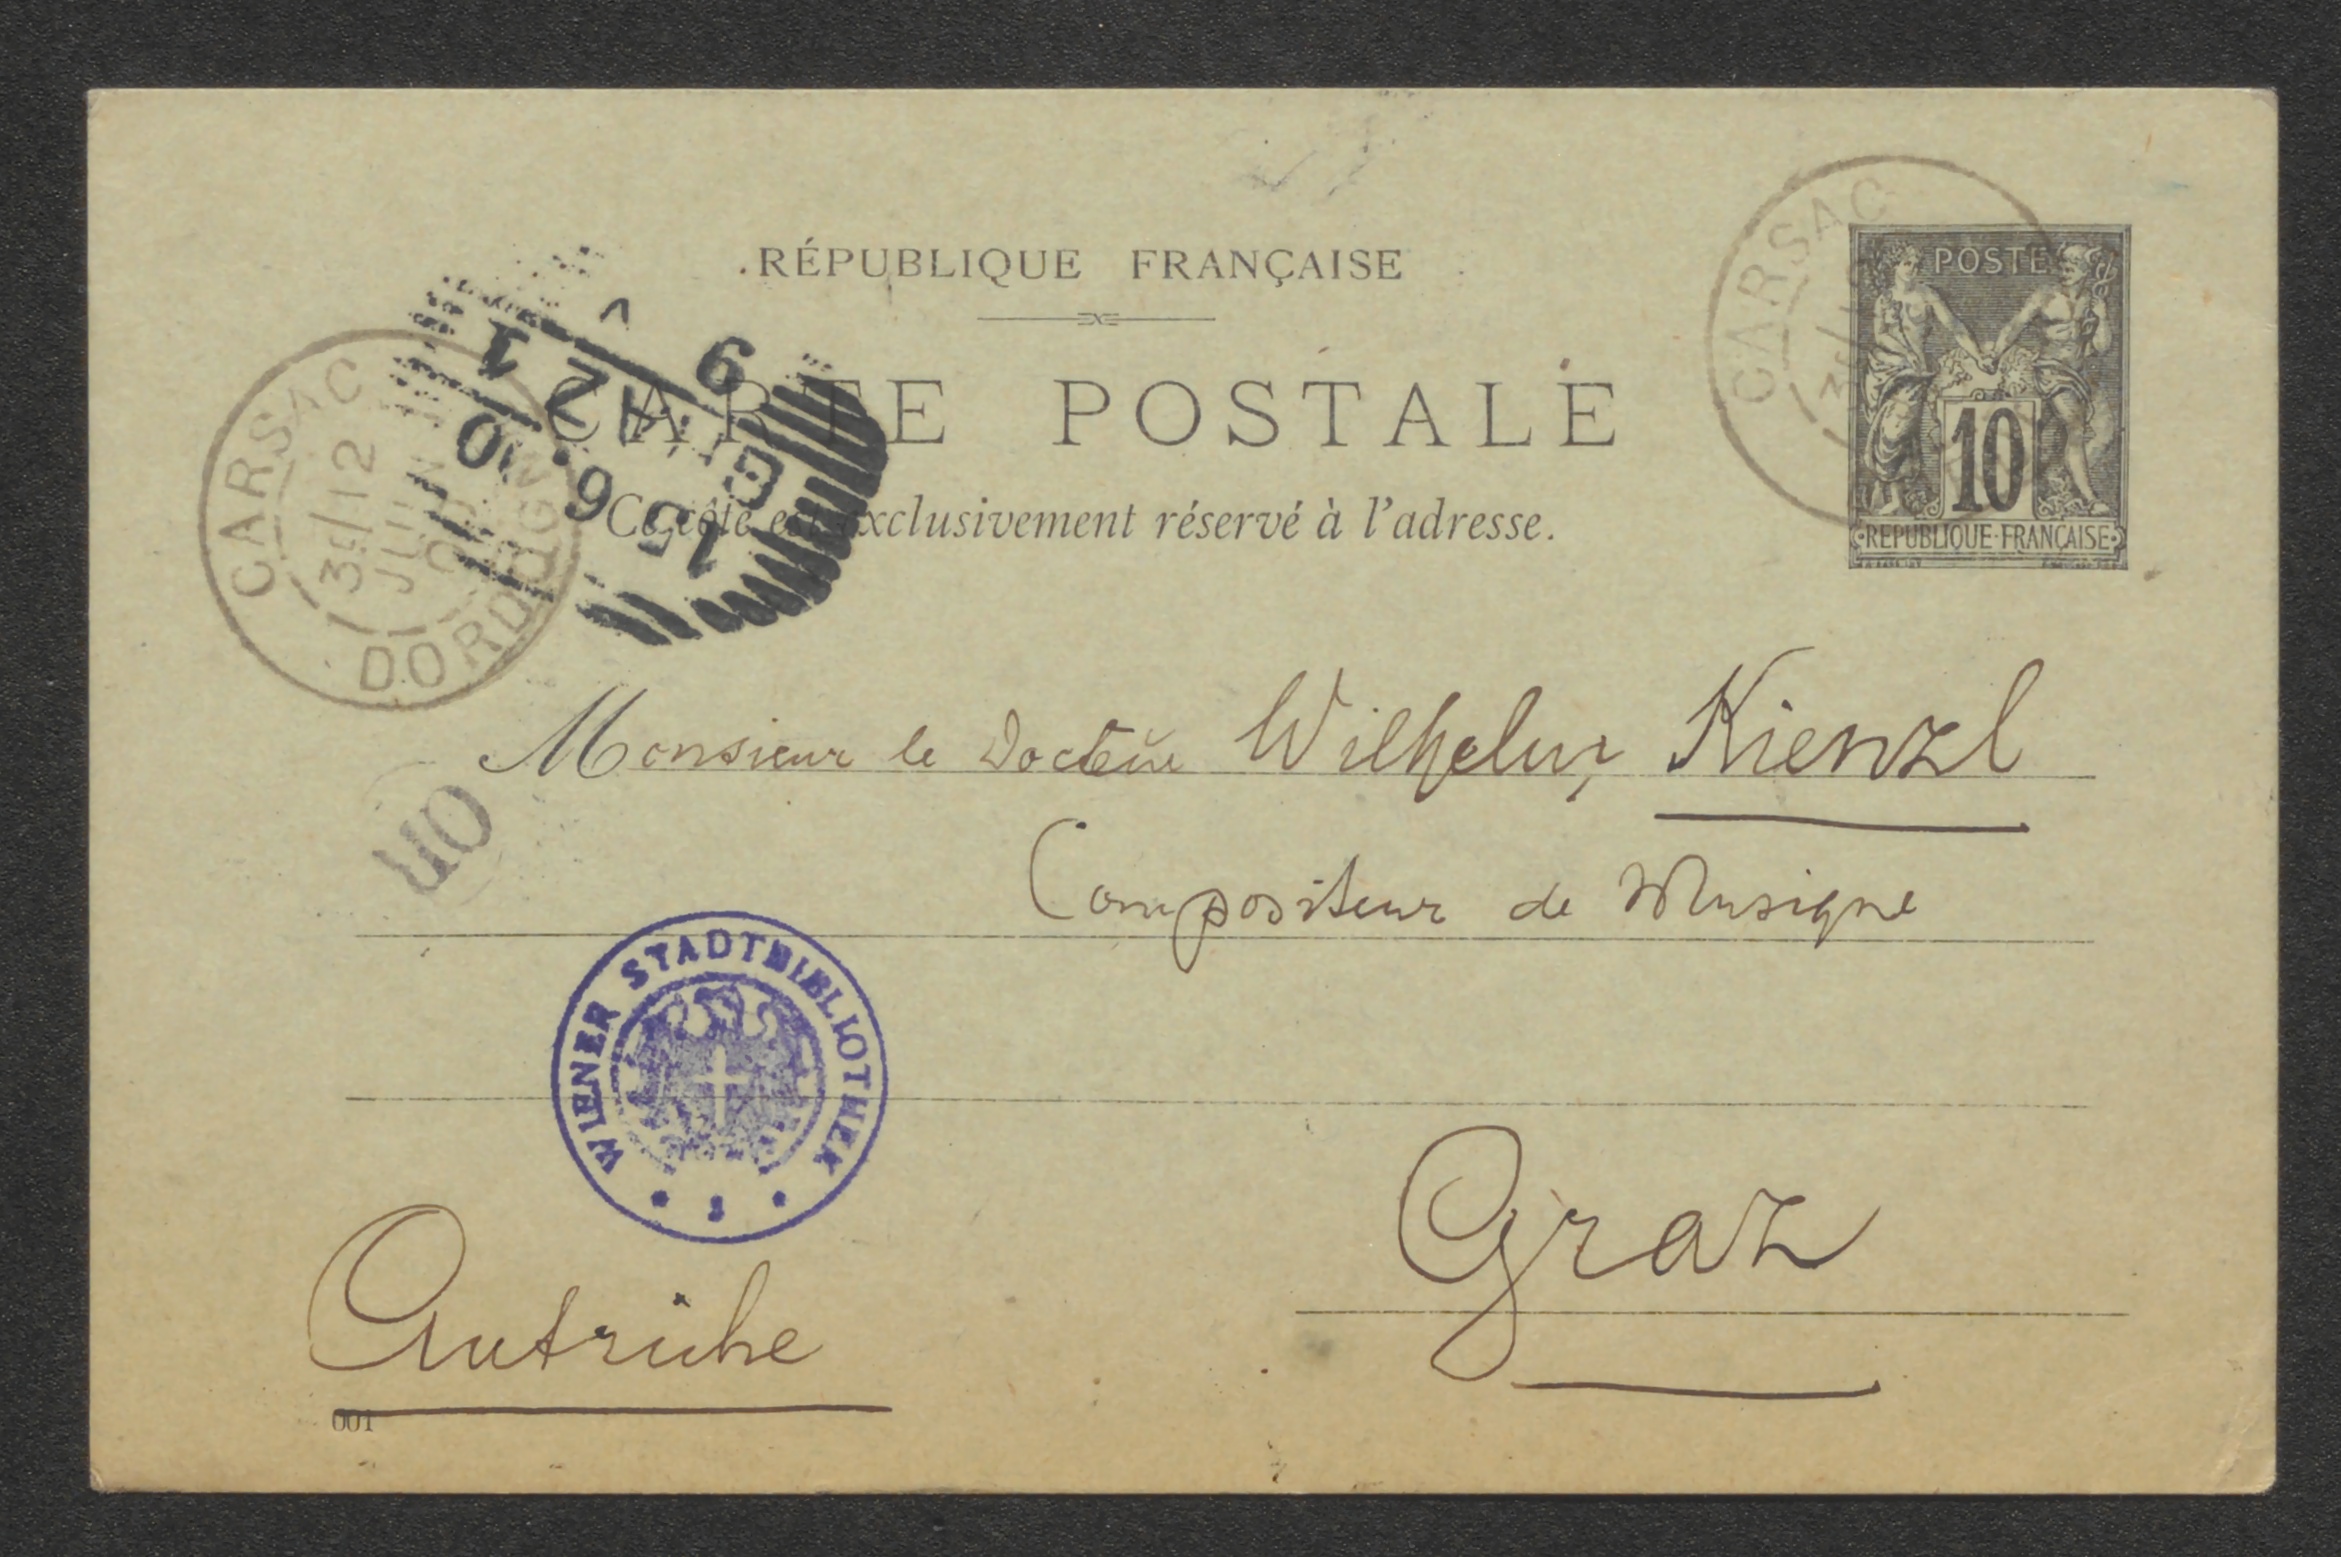 RÉPUBLIQUE FRANÇAISE
CARTE POSTALE
Ce côté est exclusivement réservé à l'adresse.
POSTE
10
REPUBLIQUE FRANÇAISE
CARSAC
CARSAC
3E/12
JUIN
DORDOGNE
GRAZ 1
15 6. 00
9
Monsieur le Docteur Wilhelm Kienzl
Compositeur de Musique
110
WIENER STADTBIBLIOTHEK
Graz
Autriche
001